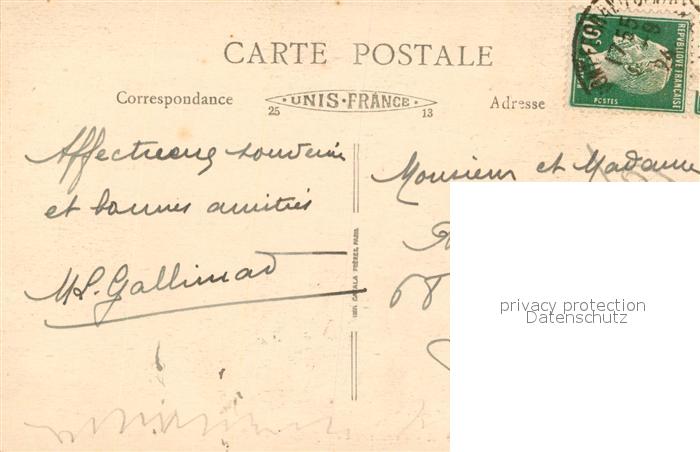 CARTE POSTALE
Correspondance
UNIS-FRANCE
25 13
Adresse
REPVBLIQVE FRANÇAISE
POSTES
Affectueux souvenir
et bonnes amitiés
M.L. Gallimad
Monsieur et Madame
68
CATALA FRÈRES, PARIS
privacy protection
Datenschutz